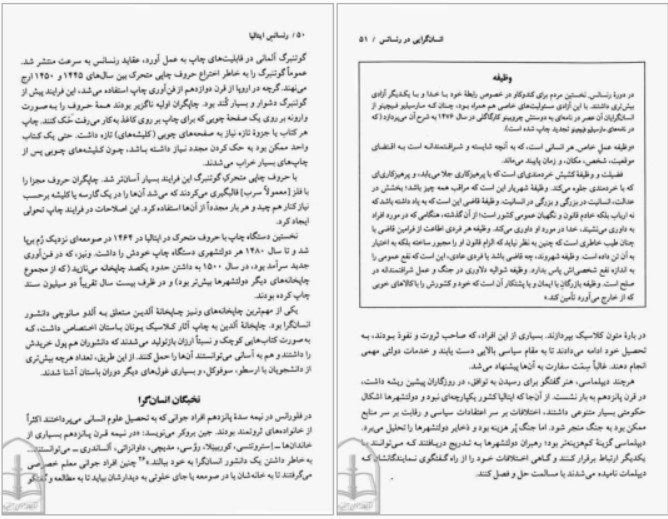 ۵۰ / رنسانس ایتالیا
گوتنبرگ آلمانی در قابلیت‌های چاپ به عمل آورد، عقاید رنسانس به سرعت منتشر شد.
عموماً گوتنبرگ را به خاطر اختراع حروف چاپی متحرک بین سال‌های ۱۴۴۵ و ۱۴۵۰ ارج
می‌نهند. گرچه در اروپا از قرن دوازدهم از فن‌آوری چاپ استفاده می‌شد، این فرایند پیش از
گوتنبرگ دشوار و بسیار کُند بود. چاپگران اولیه ناگزیر بودند همهٔ حروف را به صورت
وارونه بر روی یک صفحهٔ چوبی که برای چاپ بر روی کاغذ به کار می‌رفت حک کنند. چاپ
هر کتاب یا جزوهٔ تازه نیاز به صفحه‌های چوبی (کلیشه‌های) تازه داشت. حتی یک کتاب
واحد ممکن بود به حک کردن مجدد نیاز داشته باشد، چون کلیشه‌های چوبی پس از
چاپ‌های بسیار خراب می‌شدند.
با حروف چاپی متحرک گوتنبرگ این فرایند بسیار آسان‌تر شد. چاپگران حروف مجزا را
با فلز [معمولاً سرب] قالبگیری می‌کردند که می‌شد آن‌ها را در یک گارسه یا کلیشه برحسب
نیاز کنار هم چید و هر بار مجدداً از آن‌ها استفاده کرد. این اصلاحات در فرایند چاپ تحولی
ایجاد کرد.
نخستین دستگاه چاپ با حروف متحرک در ایتالیا در ۱۴۶۴ در صومعه‌ای نزدیک رُم برپا
شد و تا سال ۱۴۸۰ هر دولتشهری دستگاه چاپ خودش را داشت. ونیز، که در فن‌آوری
جدید سرآمد بود، در سال ۱۵۰۰ به داشتن حدود یکصد چاپخانه می‌نازید (که از مجموع
چاپخانه‌های دیگر دولتشهرها بیش‌تر بود) و در ظرف بیست سال تقریباً دو میلیون سند
چاپ کرده بودند.
یکی از مهم‌ترین چاپخانه‌های ونیز چاپخانهٔ آلدین متعلق به آلدو مانوچی دانشور
انسان‌گرا بود. چاپخانهٔ آلدین به چاپ آثار کلاسیک یونان باستان اختصاص داشت، که
به صورت کتاب‌هایی کوچک و نسبتاً ارزان بازتولید می‌شدند که دانشوران هم پول خریدش
را داشتند و هم به آسانی می‌توانستند آن‌ها را حمل کنند. از این طریق، تعداد هرچه بیش‌تری
از دانشجویان با ارسطو، سوفوکل، و بسیاری غول‌های دیگر دوران باستان آشنا شدند.
نخبگان انسان‌گرا
در فلورانس در نیمه سدهٔ پانزدهم افراد جوانی که به تحصیل علوم انسانی می‌پرداختند اکثراً
از خانواده‌های ثروتمند بودند. جین بروکر می‌نویسد: «در نیمه قرن پانزدهم بسیاری از
خاندان‌ها ــ استروتسی، کوربینلا، رُسی، مدیچی، داوانزاتی، آلساندری ــ می‌توانستند
به خاطر داشتن یک دانشور انسان‌گرا به خود ببالند.»۲۶ چنین افراد جوانی معلم خصوصی
می‌گرفتند تا به خانه‌شان یا در صومعه یا جای خلوتی به دیدارشان بیاید تا به مطالعه و گفتگو
انسان‌گرایی در رنسانس / ۵۱
وظیفه
در دورهٔ رنسانس، نخستین مردم برای کندوکاو در خصوص رابطهٔ خود با خدا و با یکدیگر آزادی
بیش‌تری داشتند. با این آزادی مسئولیت‌های خاصی هم همراه بود، چنان که مارسیلیو فیچینو از
انسان‌گرایان آن عصر در نامه‌ای به دوستش چروبینو کارگاگلی در سال ۱۴۷۶ به شرح آن می‌پردازد (که
در نامه‌های مارسیلیو فیچینو تجدید چاپ شده است).
«وظیفه عمل خاص هر انسانی است، که به آنچه شایسته و شرافتمندانه است به اقتضای
موقعیت، شخص، مکان، و زمان پایبند می‌ماند.
فضیلت و وظیفهٔ کشیش خردمندی‌ای است که با پرهیزکاری جلا می‌یابد، و پرهیزکاری‌ای
که با خردمندی جلوه می‌کند. وظیفهٔ شهریار این است که مراقب همه چیز باشد؛ بخشش در
عدالت، انسانیت در بزرگی و بزرگی در انسانیت. وظیفهٔ قاضی این است که به یاد داشته باشد که
نه ارباب بلکه خادم قانون و نگهبان عمومی کشور است؛ از آن گذشته، هنگامی که در مورد افراد
به داوری می‌نشیند، خدا در مورد او داوری می‌کند. وظیفهٔ هر فردی اطاعت از فرامین قاضی با
چنان طیب خاطری است که چنین به نظر نیاید که الزام قانون او را مجبور ساخته بلکه به اختیار
به آن تن داده است. وظیفهٔ شهروند، چه قاضی باشد یا فردی عادی، این است که نفع عمومی را
به اندازه نفع شخصی‌اش پاس بدارد. وظیفهٔ شوالیه دلاوری در جنگ و عمل شرافتمندانه در
صلح است. وظیفهٔ بازرگان با ایمان و با پشتکار آن است که خود و کشورش را با کالاهای خوبی
که از خارج می‌آورد تأمین کند.»
در بارهٔ متون کلاسیک بپردازند. بسیاری از این افراد، که صاحب ثروت و نفوذ بودند، به
تحصیل خود ادامه می‌دادند تا به مقام سیاسی بالایی دست یابند و خدمات دولتی مهمی
انجام دهند. غالباً سِمَت سفارت به آن‌ها پیشنهاد می‌شد.
هرچند دیپلماسی، هنر گفتگو برای رسیدن به توافق، در روزگاران پیشین ریشه داشت،
در قرن پانزدهم به بار نشست. از آن‌جا که ایتالیا کشور یکپارچه‌ای نبود و دولتشهرها اشکال
حکومتی بسیار متنوعی داشتند، اختلافات بر سر اعتقادات سیاسی و رقابت بر سر منابع
ممکن بود به جنگ منجر شود. اما جنگ پُر هزینه بود و ذخایر دولتشهرها را تحلیل می‌برد.
دیپلماسی گزینهٔ کم‌هزینه‌تر بود؛ رهبران دولتشهرها به تدریج دریافتند که می‌توانند با
یکدیگر ارتباط برقرار کنند و گاهی اختلافات خود را از راه گفتگوی نمایندگانشان که
دیپلمات نامیده می‌شدند با مسالمت حل و فصل کنند.